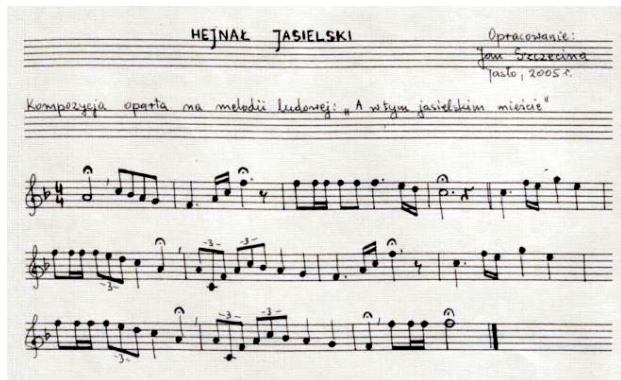 HEJNAŁ JASIELSKI
Opracowanie:
Jan Szczecina
Jasło, 2005 r.
Kompozycja oparta na melodii ludowej: „A w tym jasielskim mieście"
4
4
-3-
-3-
-3-
-3-
-3-
-3-